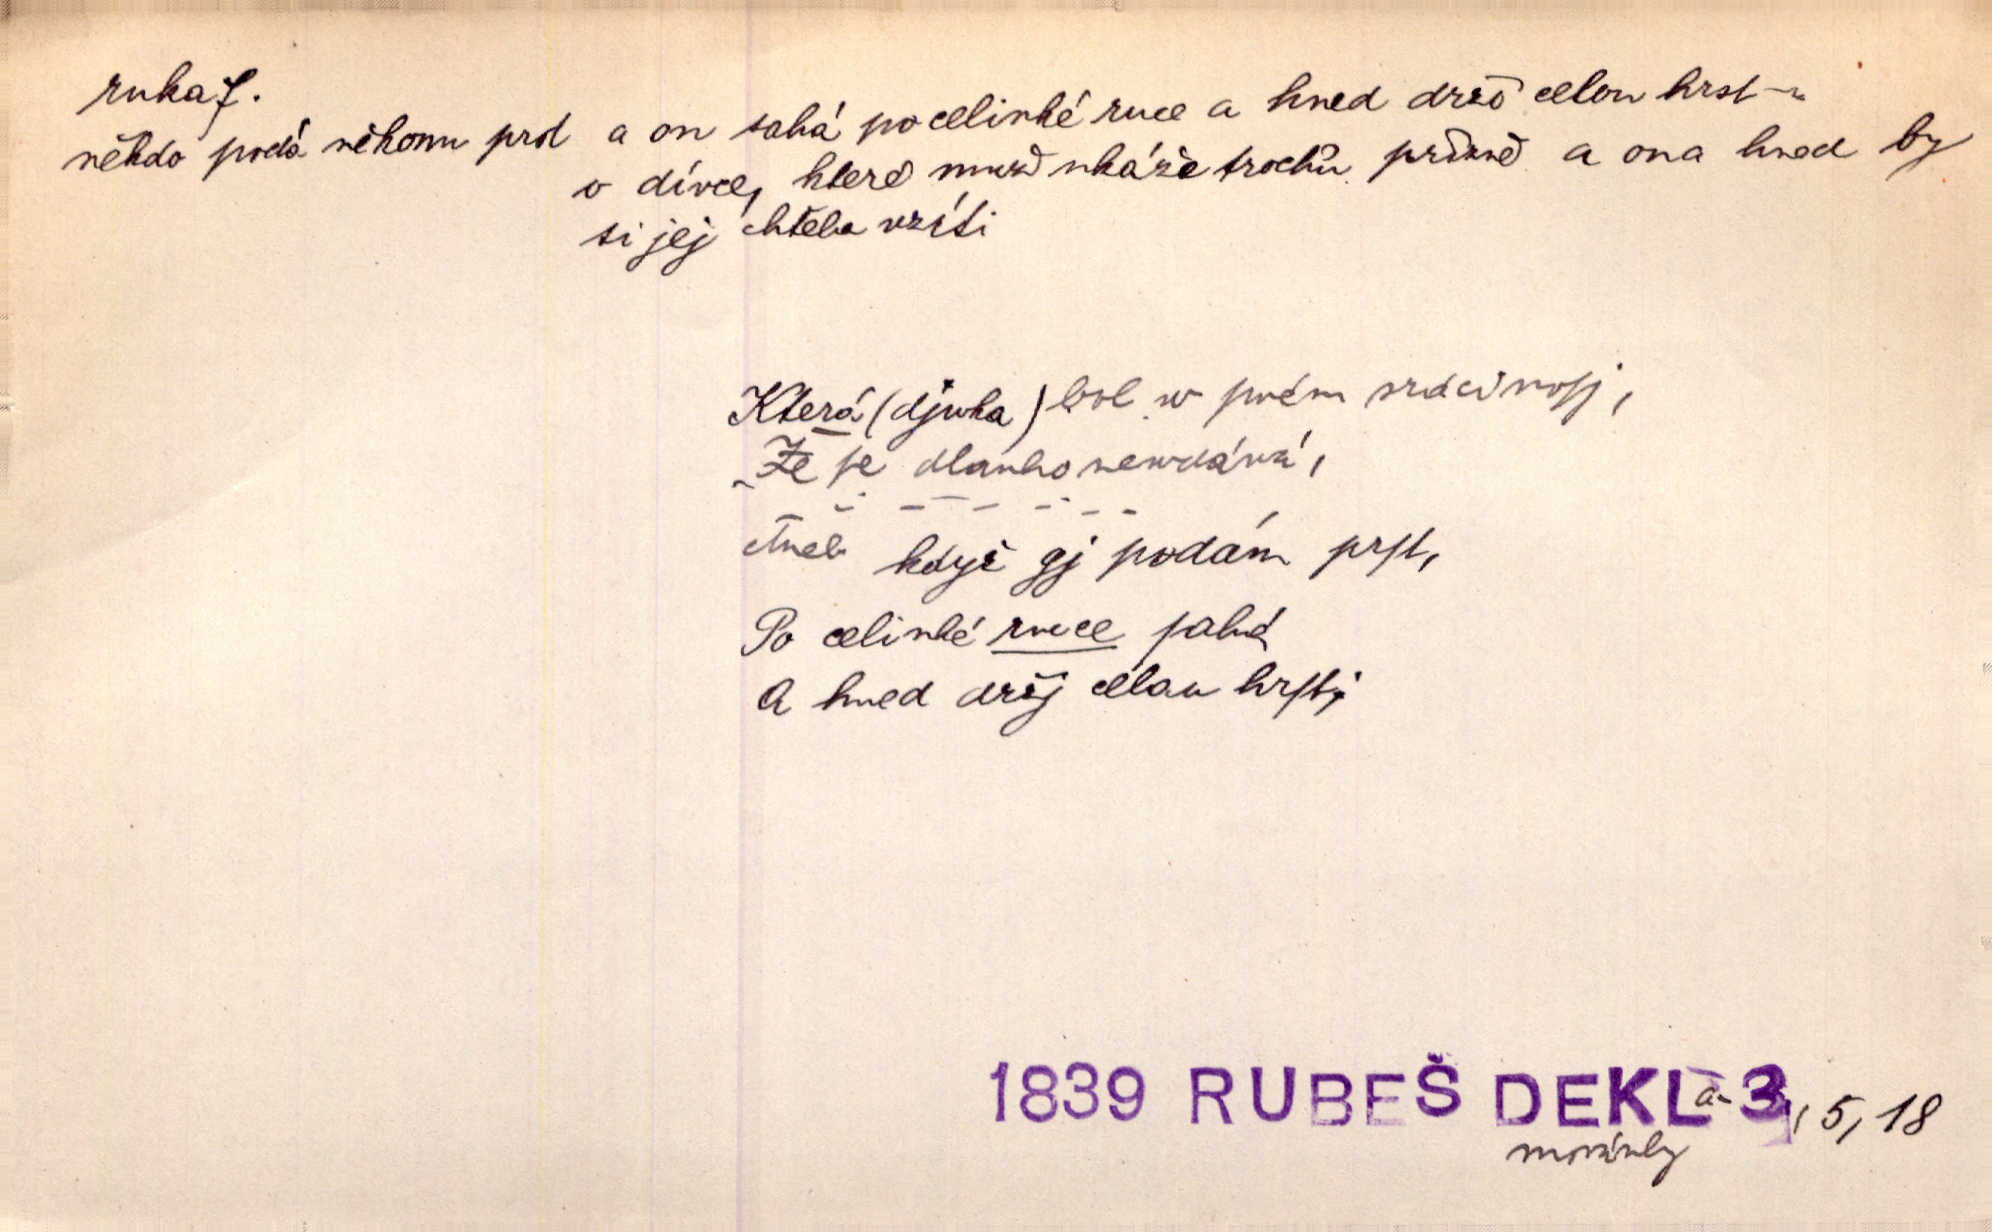 ruka f.
někdo podá někomu prst a on sahá po celinké ruce a hned drží celou hrst –
o dívce, které muž ukáže trochu přízně a ona hned by
si jej chtěla vzíti
Která (djwka) bol w swém srdci nosj,
Že se dlauho newdáwá,
když gj podám prst,
Po celinké ruce sahá
A hned držj celau hrst;
1839 RUBEŠ DEKLa- 3, 5, 18
movánky